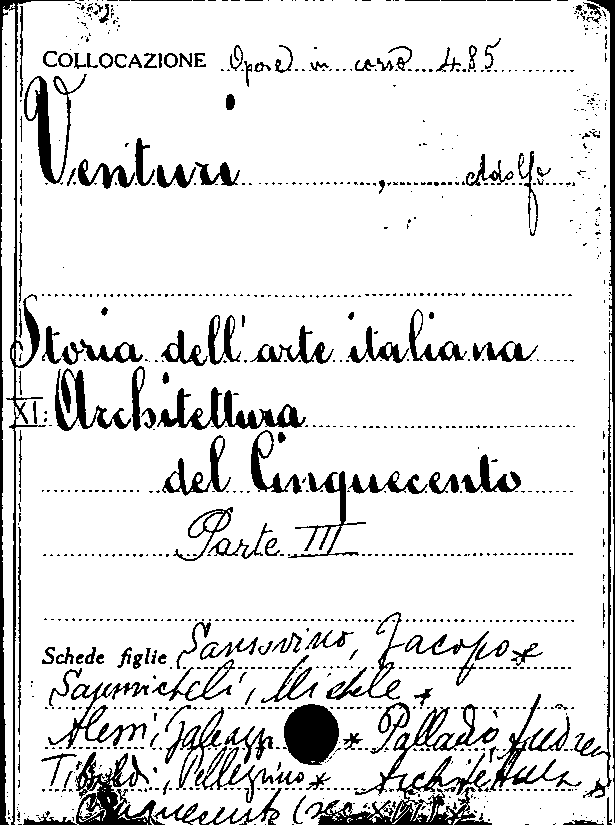 COLLOCAZIONE Opere in corso 485
Venturi, Adolfo
Storia dell'arte italiana
XI: Architettura
del Cinquecento
Parte III
Schede figlie Sansovino, Jacopo *
Sanmicheli, Michele *
Alessi, Galeazzo * Palladio, Andrea
Tibaldi, Pellegrino * Architettura *
Cinquecento (sec. XVI)